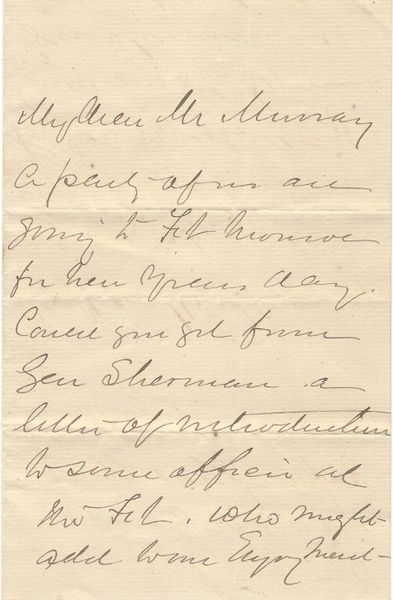 My dear Mr Murray
A party of us are
going to Ft Monroe
for New Years day.
Could you get from
Gen Sherman a
letter of introduction
to some officer at
the Ft. who might
add to our Enjoyment